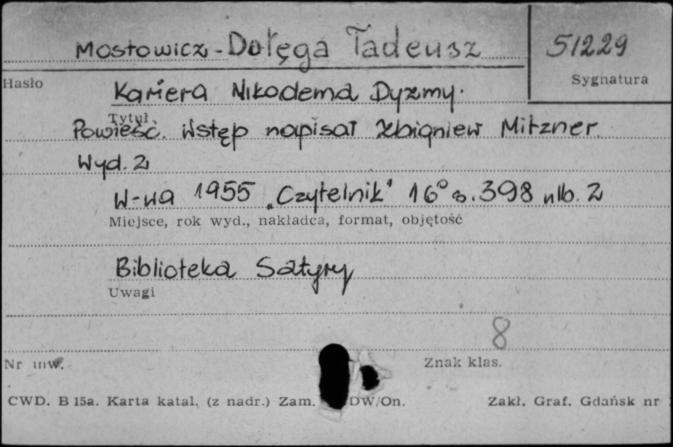 Mostowicz-Dołęga Tadeusz
51229
Hasło
Sygnatura
Kariera Nikodema Dyzmy.
Tytuł
Powieść. Wstęp napisał Zbigniew Mitzner.
Wyd. 2
W-wa 1955 „Czytelnik" 16° s. 398 nlb. 2
Miejsce, rok wyd., nakładca, format, objętość
Biblioteka Satyry
Uwagi
8
Nr inw.
Znak klas.
CWD. B 15a. Karta katal. (z nadr.) Zam. DW/On.
Zakł. Graf. Gdańsk nr